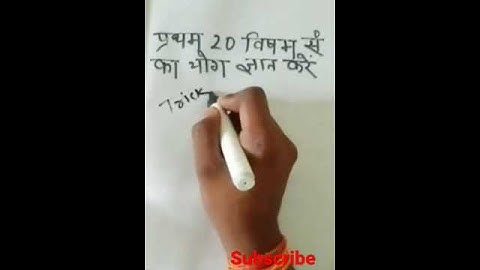 प्रथम 20 विषम सं
का योग ज्ञात करें
Trick
Subscribe